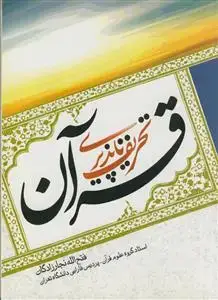 تحریف ناپذیری
قرآن
فتح‌الله نجارزادگان
استاد گروه علوم قرآن، پردیس فارابی دانشگاه تهران